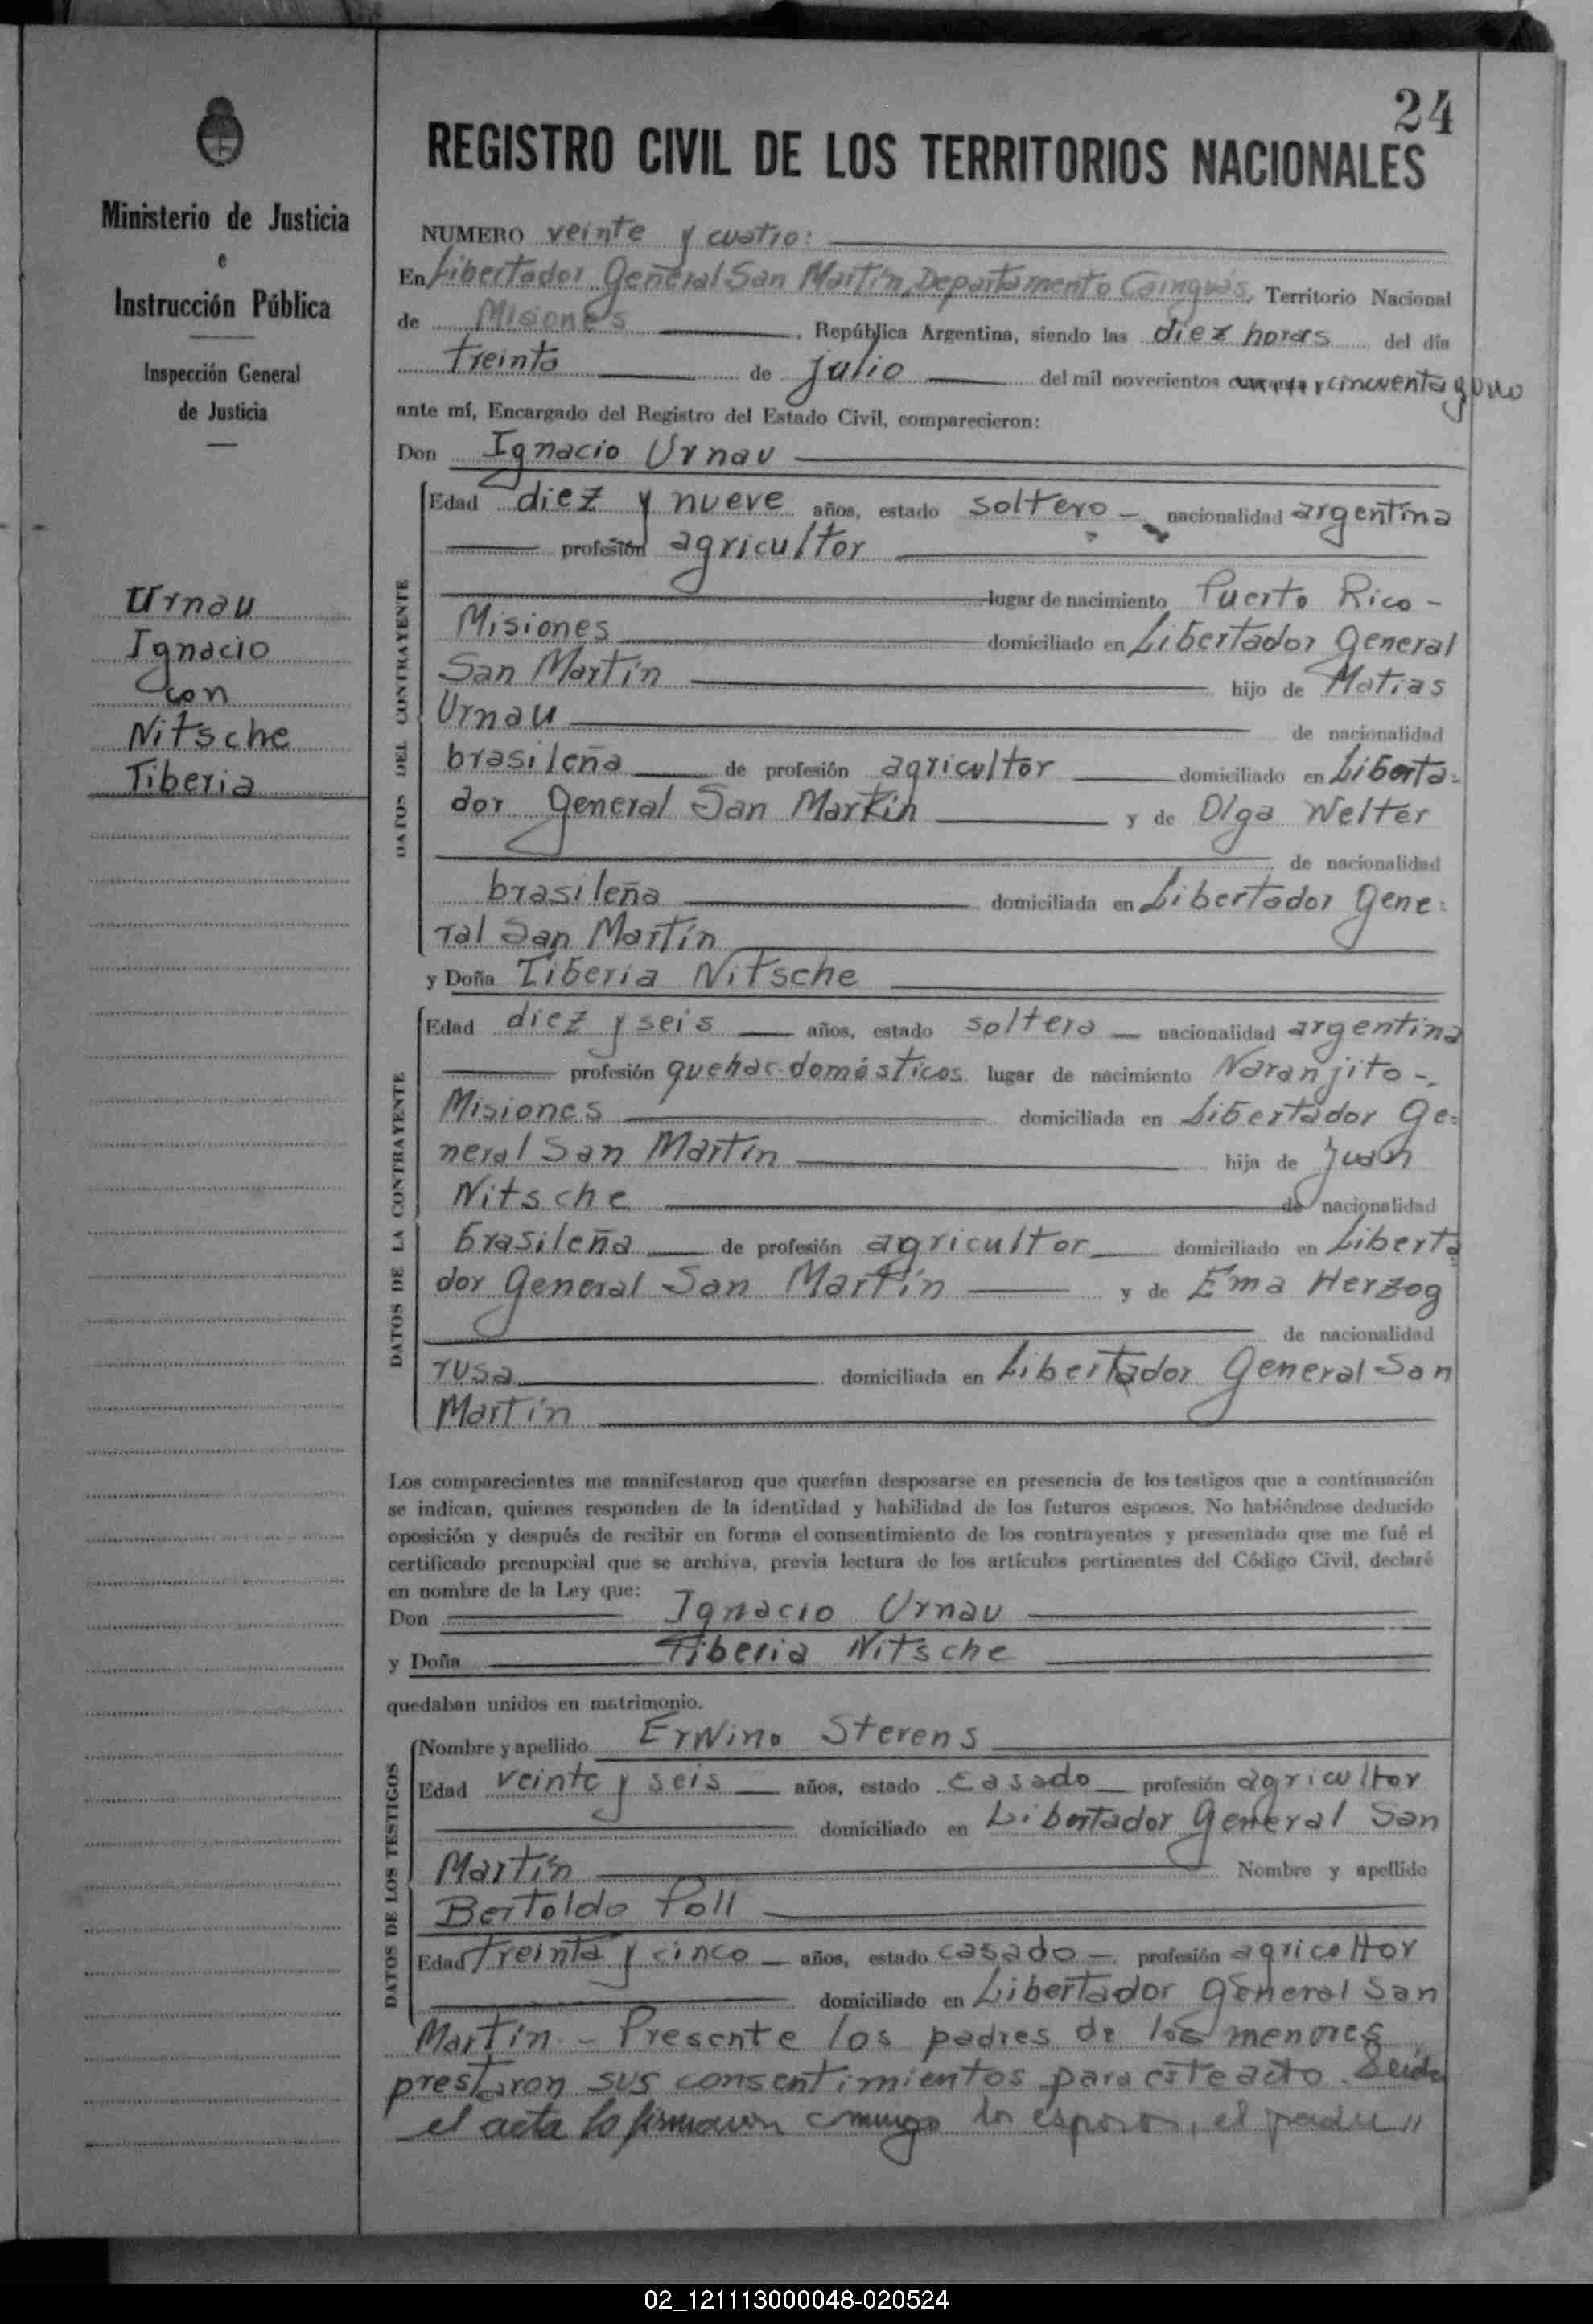 24
REGISTRO CIVIL DE LOS TERRITORIOS NACIONALES
Ministerio de Justicia
e
Instrucción Pública
Inspección General
de Justicia
Urnau
Ignacio
con
Nitsche
Tiberia
NUMERO veinte y cuatro:
En Libertador General San Martín, Departamento Cainguás, Territorio Nacional
de Misiones, República Argentina, siendo las diez horas del día
treinta de julio del mil novecientos cincuenta y uno
ante mí, Encargado del Registro del Estado Civil, comparecieron:
Don Ignacio Urnau
DATOS DEL CONTRAYENTE
Edad diez y nueve años, estado soltero - nacionalidad argentina
profesión agricultor
lugar de nacimiento Puerto Rico -
Misiones domiciliado en Libertador General
San Martín hijo de Matias
Urnau de nacionalidad
brasileña de profesión agricultor domiciliado en Liberta-
dor General San Martín y de Olga Welter
de nacionalidad
brasileña domiciliada en Libertador Gene-
ral San Martín
y Doña Tiberia Nitsche
DATOS DE LA CONTRAYENTE
Edad diez y seis años, estado soltera - nacionalidad argentina
profesión quehac. domésticos lugar de nacimiento Naranjito -
Misiones domiciliada en Libertador Ge-
neral San Martín hija de Juan
Nitsche de nacionalidad
brasileña de profesión agricultor domiciliado en Liberta
dor General San Martín y de Ema Herzog
de nacionalidad
rusa domiciliada en Libertador General San
Martín
Los comparecientes me manifestaron que querían desposarse en presencia de los testigos que a continuación
se indican, quienes responden de la identidad y habilidad de los futuros esposos. No habiéndose deducido
oposición y después de recibir en forma el consentimiento de los contrayentes y presentado que me fué el
certificado prenupcial que se archiva, previa lectura de los artículos pertinentes del Código Civil, declaré
en nombre de la Ley que:
Don Ignacio Urnau
y Doña Tiberia Nitsche
quedaban unidos en matrimonio.
DATOS DE LOS TESTIGOS
Nombre y apellido Erwino Sterens
Edad veinte y seis años, estado casado profesión agricultor
domiciliado en Libertador General San
Martín Nombre y apellido
Bertoldo Poll
Edad treinta y cinco años, estado casado - profesión agricultor
domiciliado en Libertador General San
Martín - Presente los padres de los menores
prestaron sus consentimientos para este acto. Leida
el acta la firmaron conmigo los esposos, el padre "
02_121113000048-020524